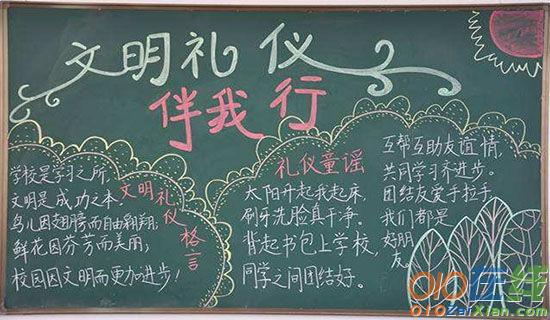 文明礼仪
伴我行
学校是学习之所，
文明是成功之本，
鸟儿因翅膀而自由翱翔，
鲜花因芬芳而美丽；
校园因文明而更加进步！
文明礼仪格言
礼仪童谣
太阳升起我起床，
刷牙洗脸真干净。
背起书包上学校，
同学之间团结好。
互帮互助友谊情，
共同学习齐进步。
团结友爱手拉手，
我们都是
好朋友。
010在线
010ZaiXian.com